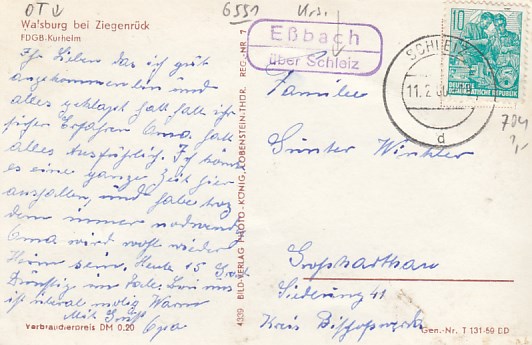 OT
6551 Krs.
Walsburg bei Ziegenrück
FDGB-Kurheim
Eßbach
über Schleiz
SCHLEIZ
11.2.
d
10
DEUTSCHE DEMOKRATISCHE REPUBLIK
Ihr Lieben das ich gut
angekommen bin und
alles geklappt hatt habt ihr
sicher Erfahren Oma hatt
alles Ausführlich. Ich könnte
es eine ganze Zeit hier
aushallten, und habe troz
dem immer
Oma wird wohl wieder
Heim sein. Heute 15 Gr.
Dünstig im Tale. bei uns
ist überal mollig Warm
Mit Gruß Opa
Verbraucherpreis DM 0.20
4339 BILD-VERLAG PHOTO-KÖNIG, LOBENSTEIN-THÜR. REG.-NR. 7
Familie
Günter Winkler
Großharthau
Siedlung 41
Kreis Bischofswerda
Gen.-Nr. T 131-59 DD